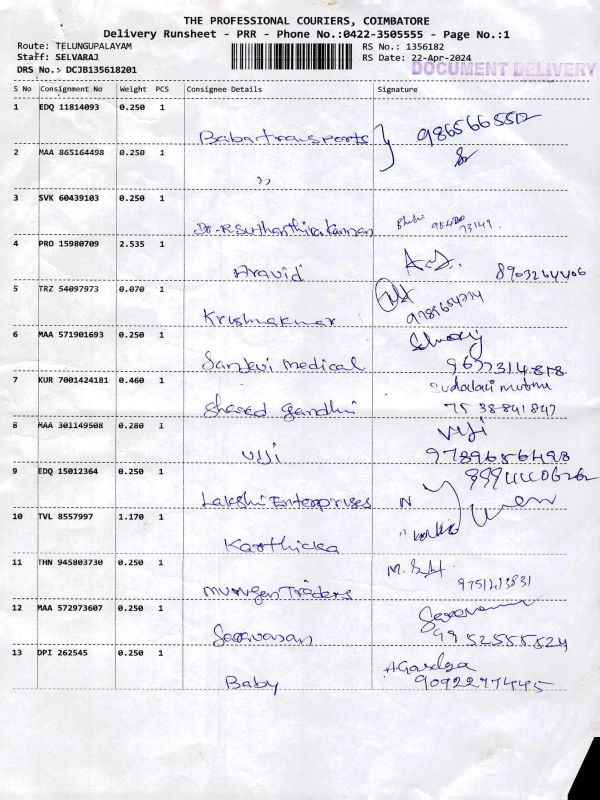 THE PROFESSIONAL COURIERS, COIMBATORE
Delivery Runsheet - PRR - Phone No.:0422-3505555 - Page No.:1
Route: TELUNGUPALAYAM RS No.: 1356182
Staff: SELVARAJ RS Date: 22-Apr-2024
DRS No.: DCJB135618201 DOCUMENT DELIVERY
S No Consignment No Weight PCS Consignee Details Signature
1 EDQ 11814093 0.250 1
Baba transports 9865665512
2 MAA 865164498 0.250 1
"
3 SVK 60439103 0.250 1
Dr. R. Sutharthirakannan
4 PRO 15980709 2.535 1
Aravid 8903264406
5 TRZ 54097973 0.070 1
Krishnakumar
6 MAA 571901693 0.250 1
Sanjivi medical 9677314818
7 KUR 7001424181 0.460 1 Sudalai muthu
Sharad gandhi 7538841847
8 MAA 301149508 0.280 1 Viji
Viji 9789656498
9 EDQ 15012364 0.250 1
Lakshi Enterprises
10 TVL 8557997 1.170 1
Karthicka
11 THN 945803730 0.250 1
Murugan Traders
12 MAA 572973607 0.250 1
Saravanan 9952555524
13 DPI 262545 0.250 1
Baby 9092277445